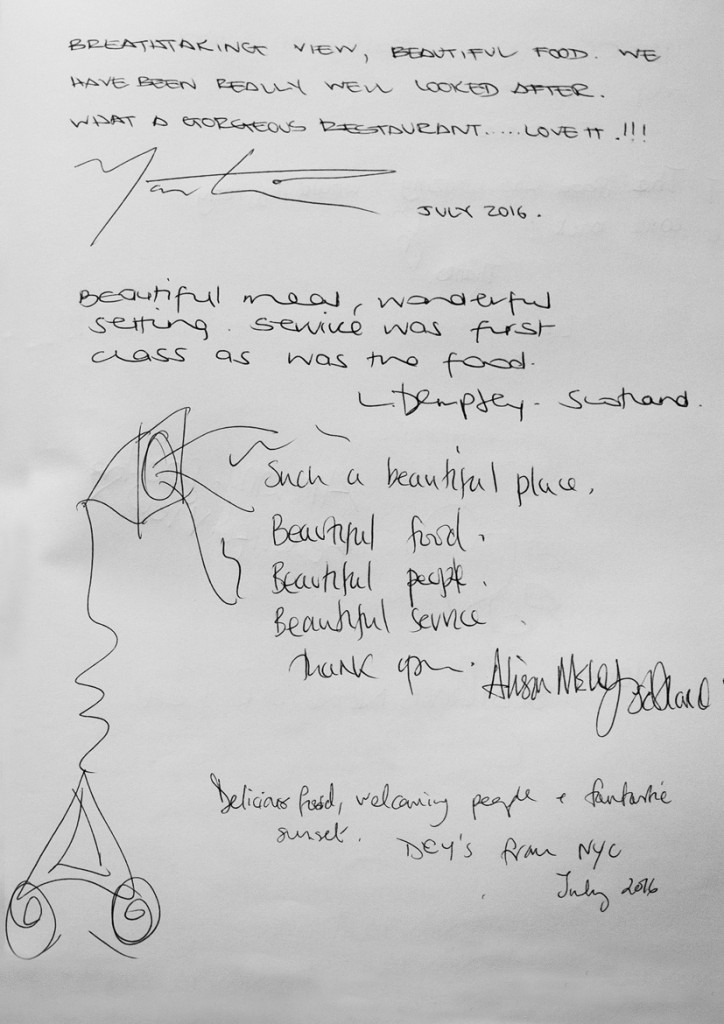 BREATHTAKING VIEW, BEAUTIFUL FOOD. WE
HAVE BEEN REALLY WELL LOOKED AFTER.
WHAT A GORGEOUS RESTAURANT.....LOVE IT.!!!
JULY 2016.
Beautiful meal, wonderful
setting. Service was first
class as was the food.
L. Dempsey - Scotland.
Such a beautiful place.
Beautiful food.
Beautiful people.
Beautiful service.
Thank you. Alison
Delicious food, welcoming people + fantastic
sunset. DEY'S from NYC
July 2016